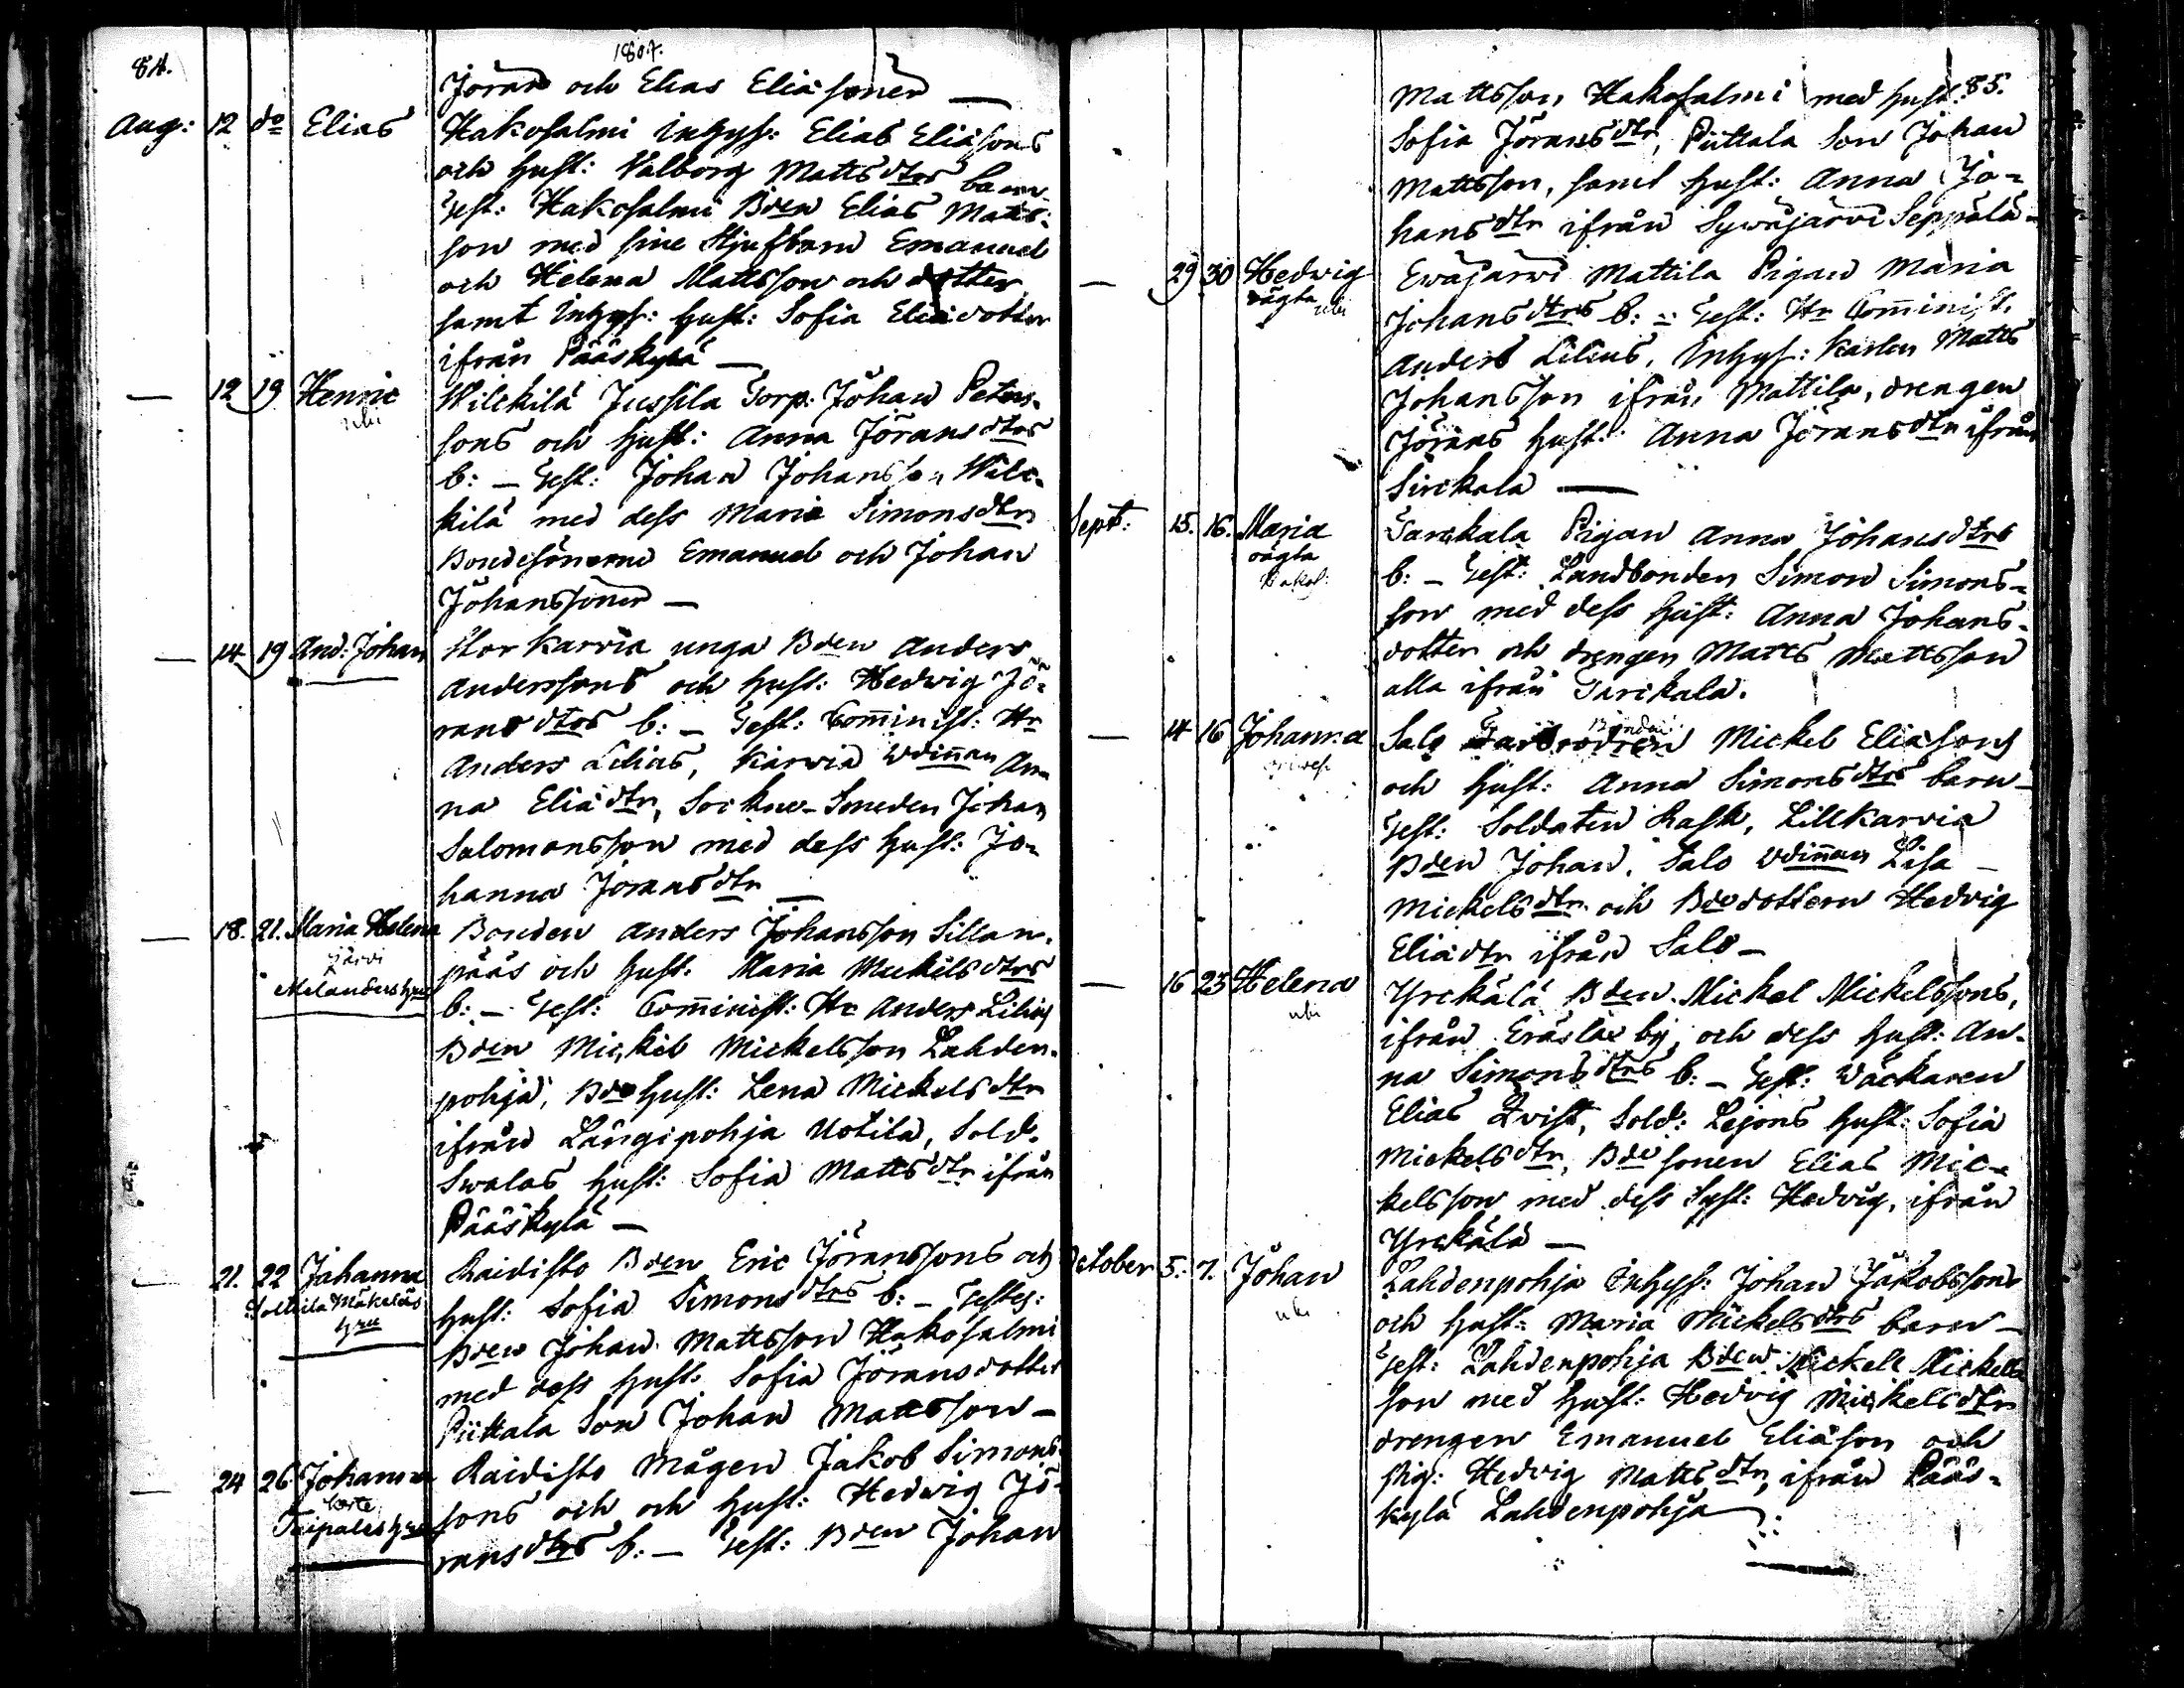 84.
1807.
Jöran och Elias Eliæ söner —
Aug: 12 do Elias Hakosalmi Inhys: Elias Eliæsons
och hust: Valborg Matts dtrs barn
Test: Hakosalmi Bden Elias Matts-
son med sine Stjufbarn Emanuel
och Helena Mattsson och dotter
samt Inhys: hust: Sofia Eliædotter
ifrån Pääskylä —
— 12 19 Henric Wilckilä Jussila Torp: Johan Peters-
sons och hust: Anna Jörans dtrs
b: — Test: Johan Johansson Wilc-
kilä med dess Maria Simonsdtr
Bondesönerne Emanuel och Johan
Johanssöner —
— 14 19 And: Johan Stor Karvia unga Bden Anders
Anderssons och hust: Hedwig Jö-
rans dtrs b: — Test: Comminist: Hr
Anders Lilius, Karvia Wdinnan An-
na Eliædtr, Sockne-Smeden Johan
Salomonsson med dess hust: Jo-
hanna Joransdtr —
— 18. 21. Maria Helena Bonden Anders Johansson Sillan-
Järvi
Melanders hru
pääs och hust: Maria Mickelsdtrs
b: — Test: Comminist: Hr Anders Lilius
Bden Mickel Mickelsson Lahden-
pohja, Bde hust: Lena Mickelsdtr
ifrån Längipohja Uotila, Sold:
Swalas hust: Sofia Mattsdtr ifrån
Pääskylä —
— 21. 22 Johanna Raidisto Bden Eric Joranssons och
Mäkeläs
hru
hust: Sofia Simonsdtrs b: — Testes:
Bden Johan Mattsson Hakosalmi
med dess hust: Sofia Joransdotter
Piittala Son Johan Mattsson —
— 24 26 Johanna Raidisto Mågen Jakob Simons-
Taipales hru
sons och och hust: Hedwig Jö-
ransdtrs b: — Test: Bden Johan
85.
Mattsson Hakosalmi med hust:
Sofia Jöransdtr, Piittala Son Johan
Mattsson, samt hust: Anna Jo-
hansdtr ifrån Sywäjärvi Seppälä —
— 29 30 Hedwig Ewäjärwi Mattila Pigan Maria
oägta
Johansdtrs b: — Test: Hr Comminist:
Anders Lilius, Inhys: Karlen Matts
Johansson ifrån Mattila, drengen
Jörans hust: Anna Jöransdtr ifrån
Sirckala —
Sept: 15. 16. Maria Tarckala Pigan Anna Johansdtrs
oägta
b: — Test: Landbonden Simon Simons-
son med dess hust: Anna Johans-
dotter och drengen Matts Mattsson
alla ifrån Tarckala.
— 14 16 Johanna Salo Bonden Mickel Eliæsons
och hust: Anna Simonsdtrs barn —
Test: Soldaten Rask, Lillkarvia
Bden Johan, Salo Wdinnan Lisa
Mickelsdtr och Bdedottern Hedvig
Eliædtr ifrån Salo —
— 16 23 Helena Yrckälä Bden Mickel Mickelssons,
ifrån Eräslax by, och dess hust: An-
na Simonsdtrs b: — Test: Wäckaren
Elias Qvist, Sold: Lejons hust: Sofia
Mickelsdtr, Bde sonen Elias Mic-
kelsson med dess Syst: Hedvig, ifrån
Yrckälä —
October 5. 7. Johan Lahdenpohja Inhys: Johan Jakobssons
och hust: Maria Mickelsdtrs barn —
Test: Lahdenpohja Bden Mickell Mickells
son med hust: Hedvig Mickelsdtr
drengen Emanuel Eliæson och
Pig: Hedvig Mattsdtr, ifrån Pääs-
kylä Lahdenpohja